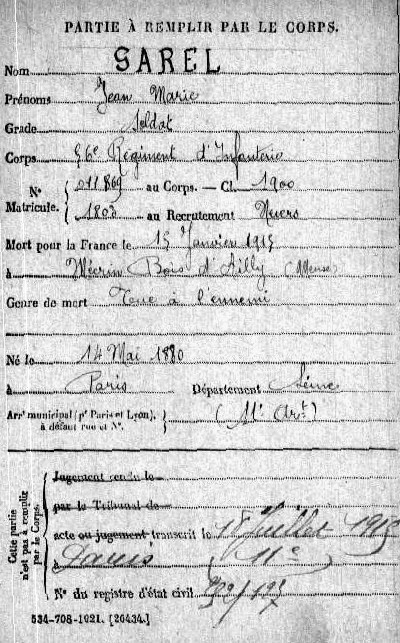 PARTIE À REMPLIR PAR LE CORPS.
Nom SAREL
Prénoms Jean Marie
Grade Soldat
Corps 56e Régiment d'Infanterie
N° Matricule. 011.869 au Corps. — Cl. 1900
1803 au Recrutement Nevers
Mort pour la France le 15 Janvier 1915
à Mécrin Bois d'Ailly (Meuse)
Genre de mort Tué à l'ennemi
Né le 14 Mai 1880
à Paris Département Seine
Arrt municipal (pr Paris et Lyon), à défaut rue et N°. (11e Art)
Cette partie n'est pas à remplir par le Corps.
Jugement rendu le
par le Tribunal de
acte ou jugement transcrit le Juillet 1915
à Paris 11e
N° du registre d'état civil
534-708-1921. [26434.]